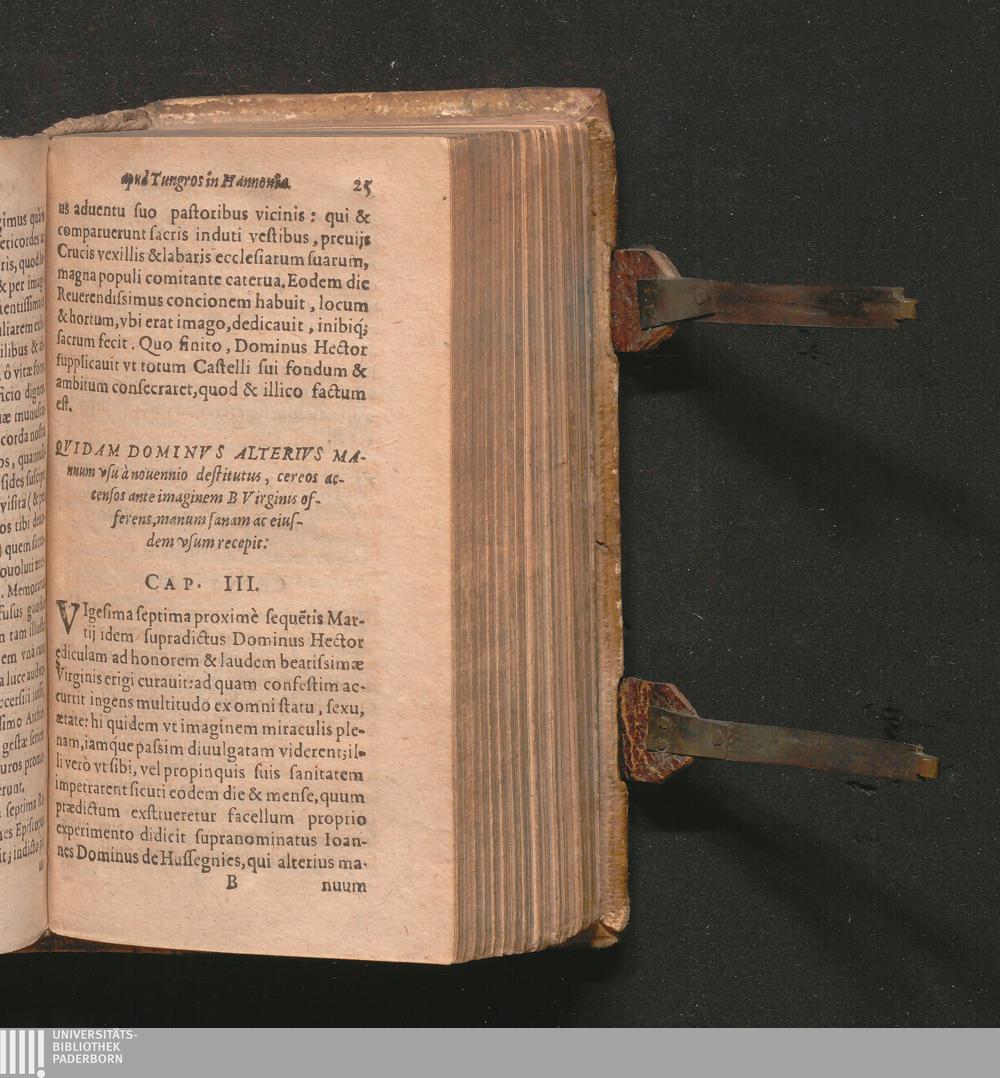 apud Tungros in Hannonia. 25
us aduentu suo pastoribus vicinis: qui &
comparuerunt sacris induti vestibus, preuijs
Crucis vexillis & labaris ecclesiarum suarum,
magna populi comitante caterua. Eodem die
Reuerendissimus concionem habuit, locum
& hortum, vbi erat imago, dedicauit, inibiq́;
sacrum fecit. Quo finito, Dominus Hector
supplicauit vt totum Castelli sui fondum &
ambitum consecraret, quod & illico factum
est.
QVIDAM DOMINVS ALTERIVS MA-
nuum vsu à nouennio destitutus, cereos ac-
censos ante imaginem B Virginis of-
ferens, manum sanam ac eius-
dem vsum recepit:
CAP. III.
VIgesima septima proximè sequētis Mar-
tij idem supradictus Dominus Hector
ędiculam ad honorem & laudem beatissimæ
Virginis erigi curauit: ad quam confestim ac-
currit ingens multitudo ex omni statu, sexu,
ætate: hi quidem vt imaginem miraculis ple-
nam, iamq́ue passim diuulgatam viderent; il-
li verò vt sibi, vel propinquis suis sanitatem
impetrarent sicuti eodem die & mense, quum
prædictum exstrueretur sacellum proprio
experimento didicit supranominatus Ioan-
nes Dominus de Hussegnies, qui alterius ma-
B nuum
UNIVERSITÄTS-
BIBLIOTHEK
PADERBORN